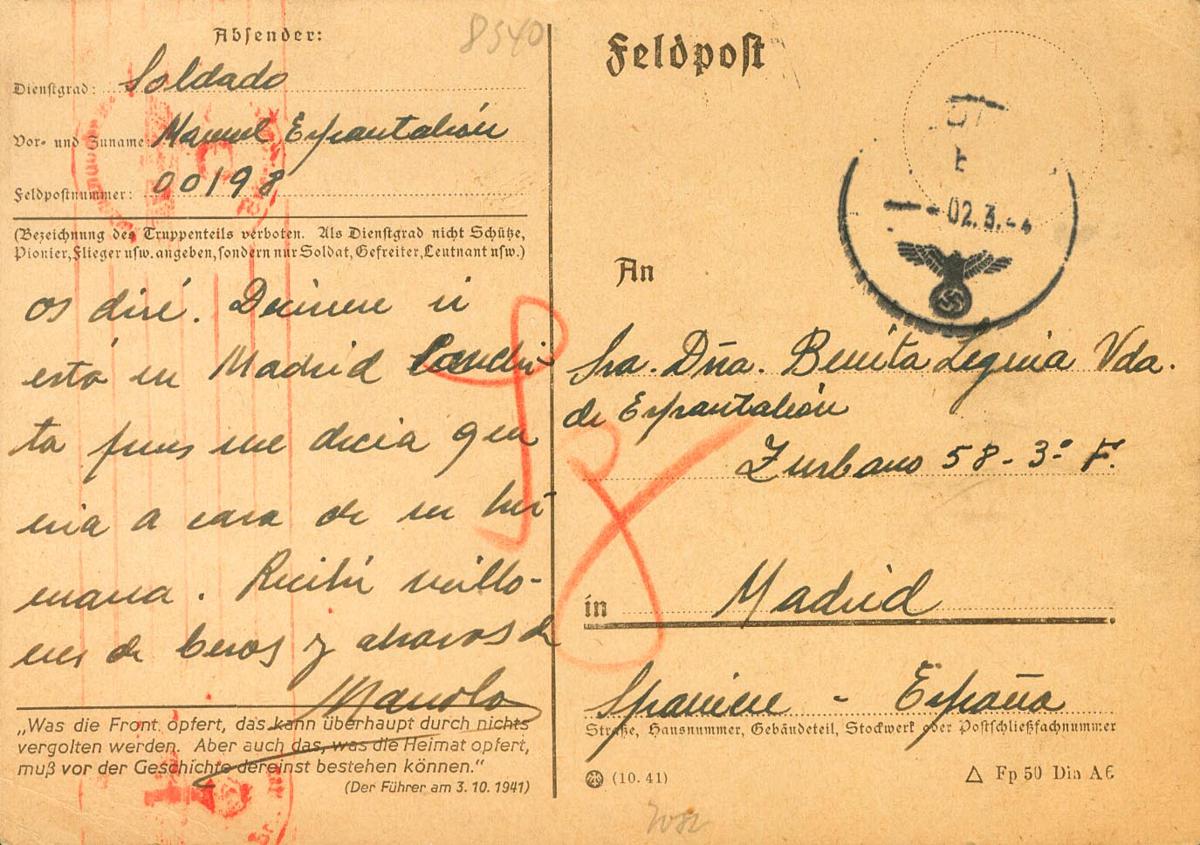 8540
Absender:
Dienstgrad: Soldado
Vor- und Zuname: Manuel Espantaleón
Feldpostnummer: 00198
(Bezeichnung des Truppenteils verboten. Als Dienstgrad nicht Schütze,
Pionier, Flieger usw. angeben, sondern nur Soldat, Gefreiter, Leutnant usw.)
os diré. Decirme si
está en Madrid Conchi
ta pues me decia que
iria a casa de su her
mana. Recibir millo-
nes de besos y abrazos de
Manolo
„Was die Front opfert, das kann überhaupt durch nichts
vergolten werden. Aber auch das, was die Heimat opfert,
muß vor der Geschichte dereinst bestehen können.“
(Der Führer am 3. 10. 1941)
Feldpost
02.3.-4
An
Sra. Dña. Benita Leguia Vda.
de Espantaleón
Zurbano 58-3º F.
in Madrid
Spanien - España
Straße, Hausnummer, Gebäudeteil, Stockwerk oder Postschließfachnummer
(10. 41)
Fp 50 Din A6